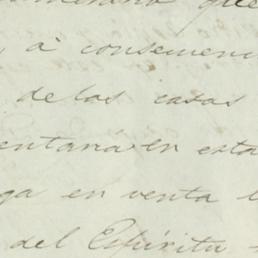 que
, á consecuenci
de las casas
entaria en esta
ga en venta l
del Espíritu